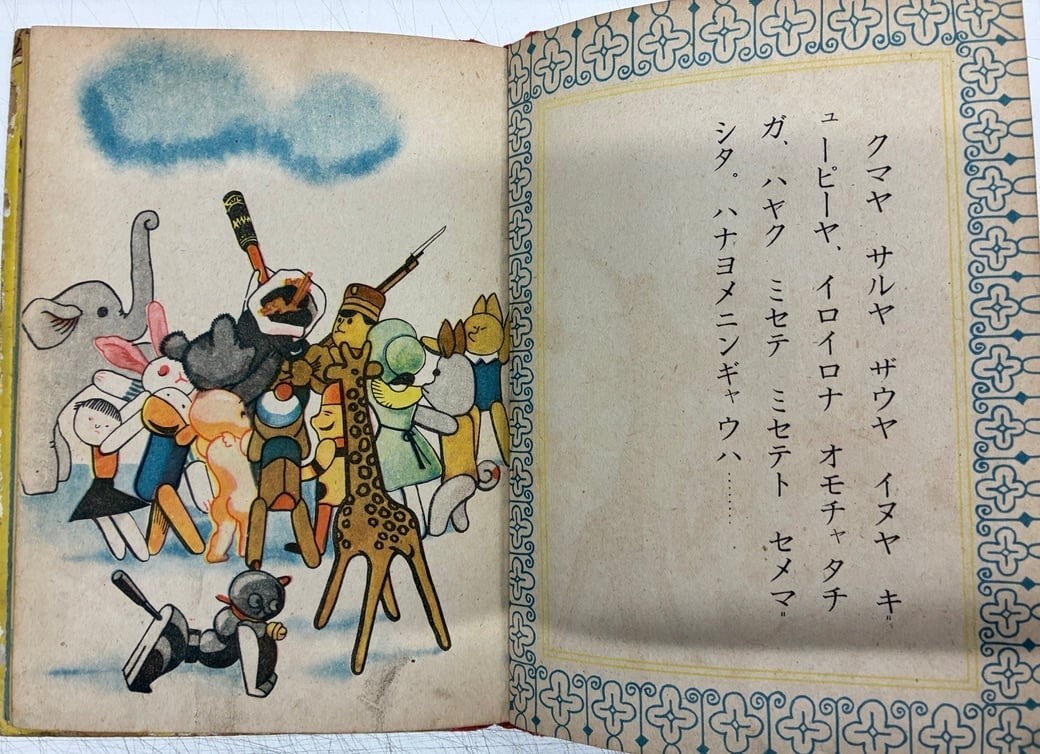 クマヤ サルヤ ザウヤ イヌヤ キ〃
ューピーヤ、イロイロナ オモチャタチ
ガ、ハヤク ミセテ ミセテト セメマ〃
シタ。ハナヨメニンギャウハ……